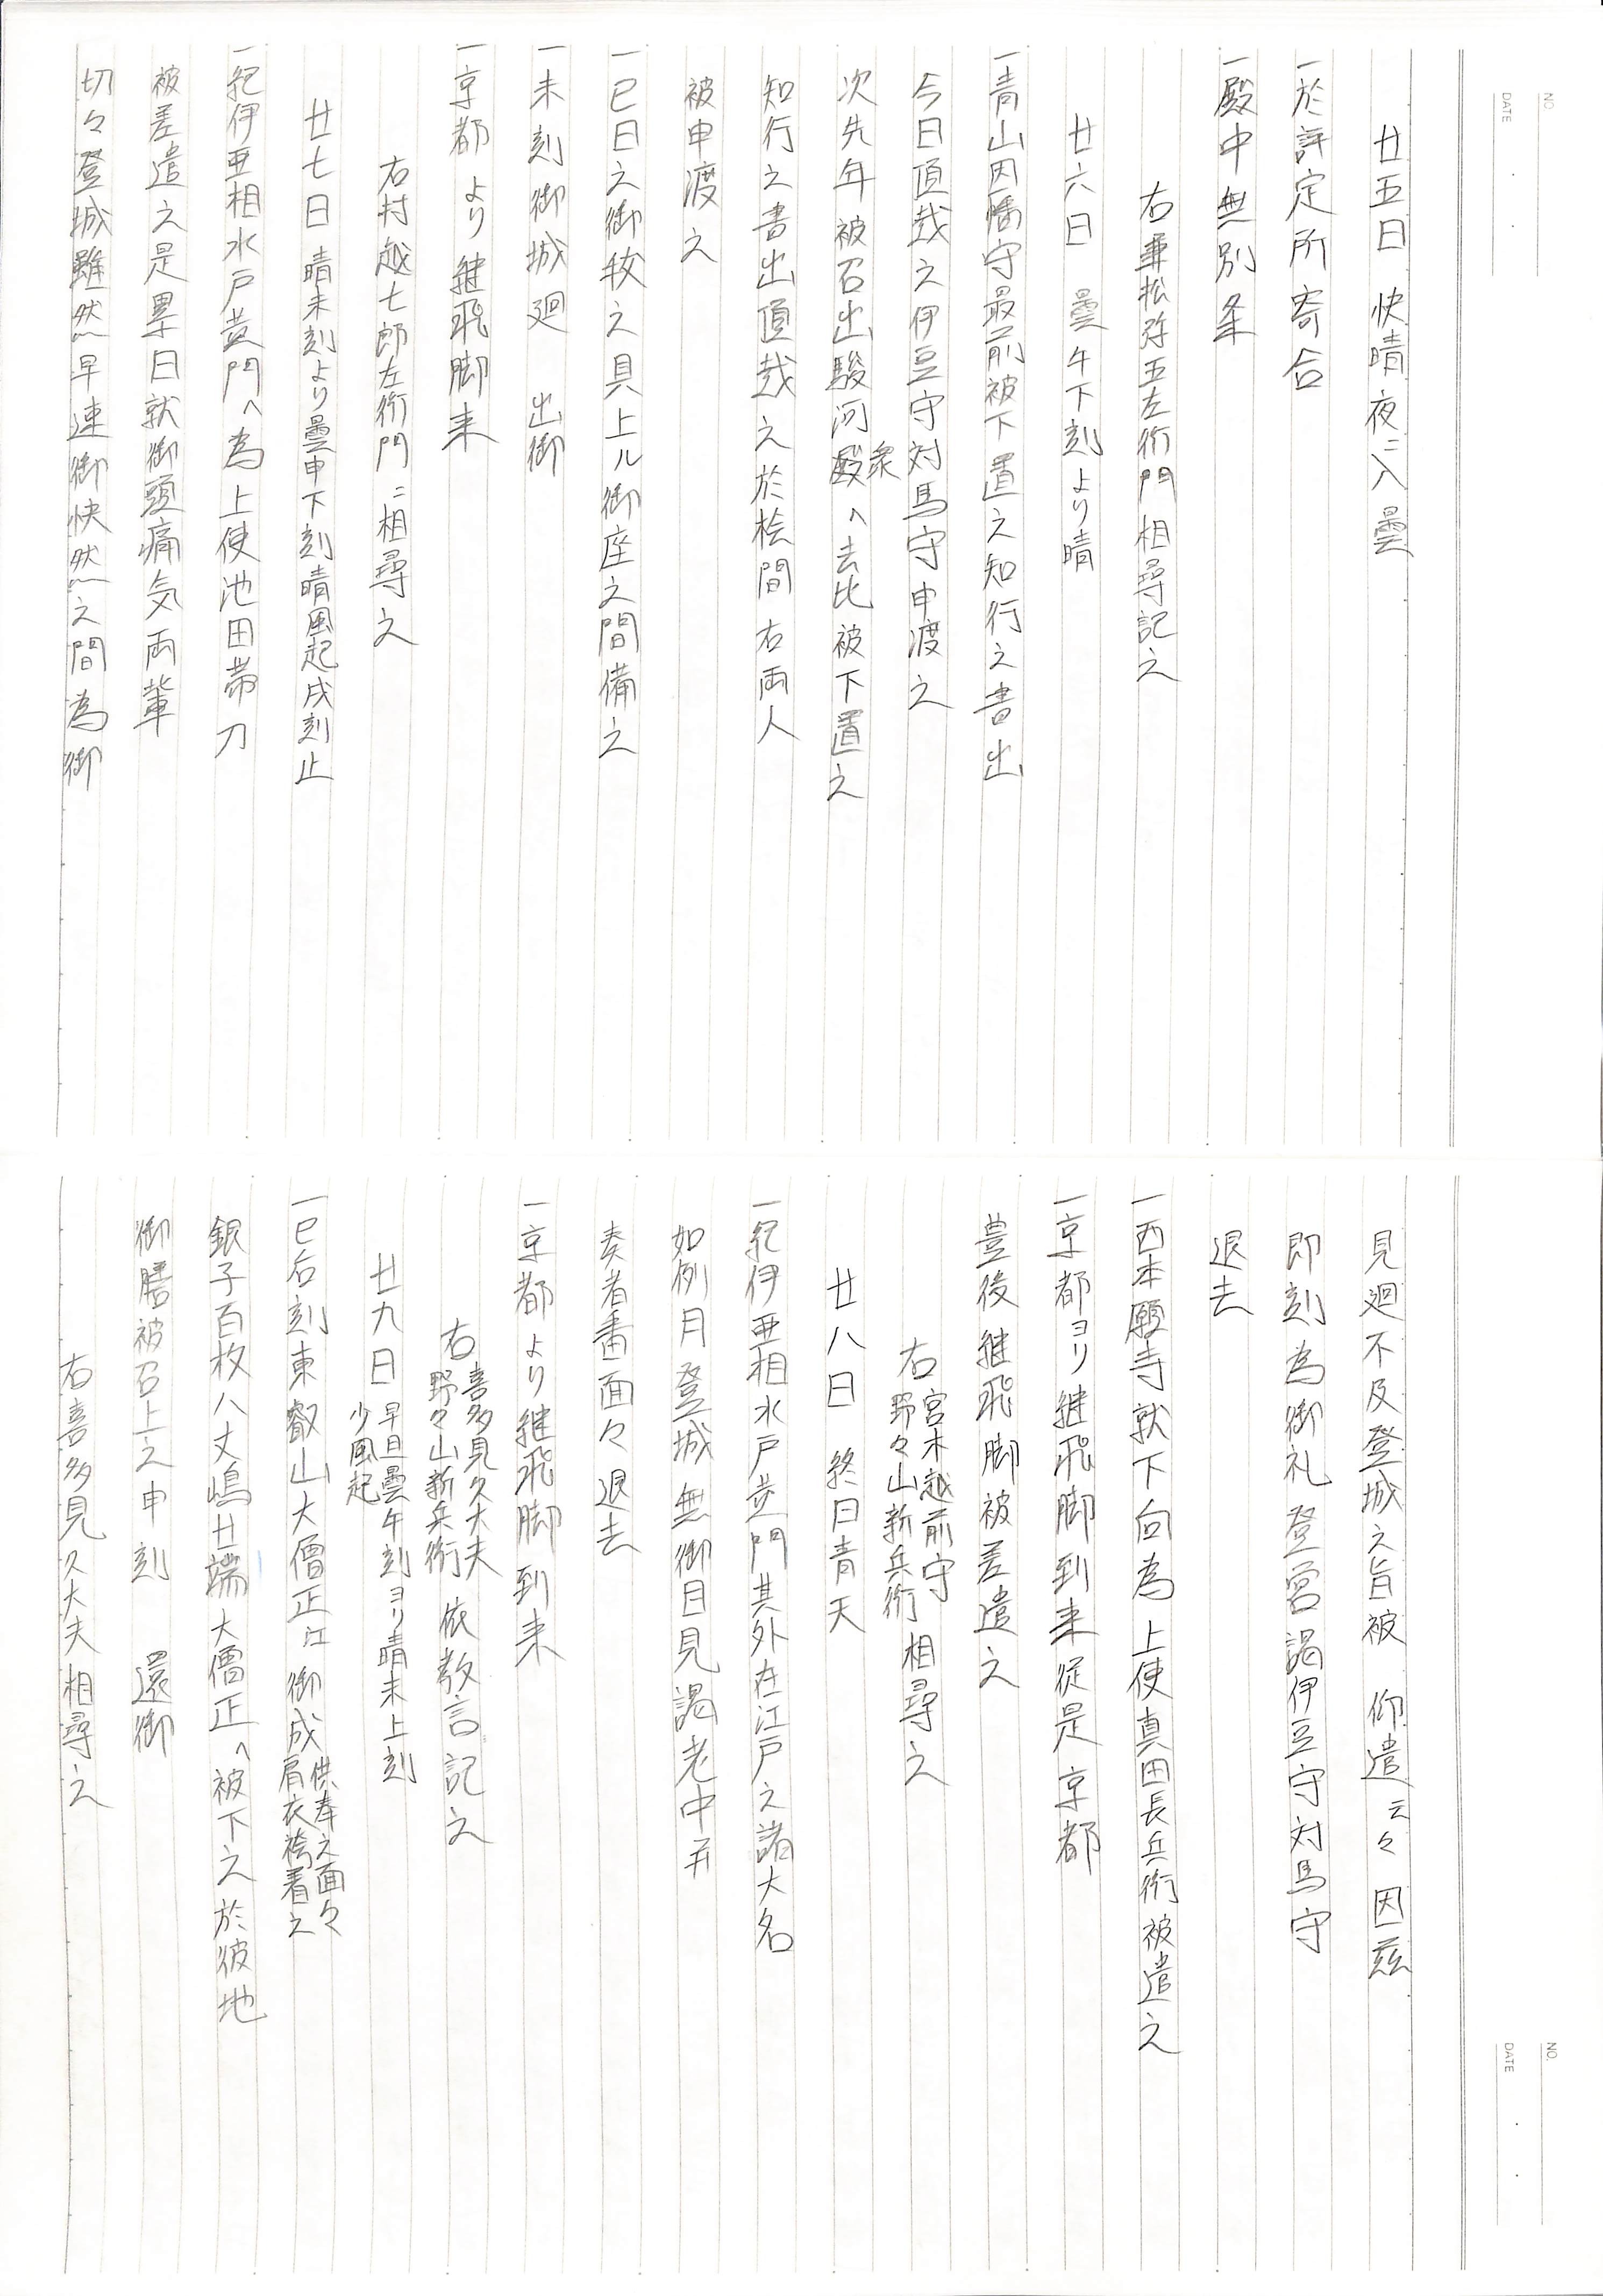 NO.
DATE
廿五日 快晴夜ニ入曇
一於評定所寄合
一殿中無別条
右兼松弥五左衛門相尋記之
廿六日 曇午下刻より晴
一青山因幡守最前被下置之知行之書出
今日頂戴之伊豆守対馬守申渡之
次先年被召出駿河殿衆へ去比被下置之
知行之書出頂戴之於桧間右両人
被申渡之
一巳日之御祓之具上ル御座之間備之
一未刻御城廻 出御
一京都より継飛脚来
右村越七郎左衛門ニ相尋之
廿七日 晴未刻より曇申下刻晴風起戌刻止
一紀伊亜相水戸黄門へ為上使池田帯刀
被差遣之是畢日就御頭痛気両輩
切々登城雖然早速御快然之間為御
NO.
DATE
見廻不及登城之旨被 仰遣云々因茲
即刻為御礼登営謁伊豆守対馬守
退去
一西本願寺就下向為 上使真田長兵衛被遣之
一京都ヨリ継飛脚到来従是京都
豊後継飛脚被差遣之
右宮木越前守
野々山新兵衛相尋之
廿八日 終日青天
一紀伊亜相水戸黄門其外在江戸之諸大名
如例月登城無御目見謁老中并
奏者番面々退去
一京都より継飛脚到来
右喜多見久大夫
野々山新兵衛依教言記之
廿九日 早旦曇午刻ヨリ晴未上刻
少風起
一巳后刻東叡山大僧正江御成供奉之面々
肩衣袴着之
銀子百枚八丈嶋廿端大僧正へ被下之於彼地
御膳被召上之申刻 還御
右喜多見久大夫相尋之